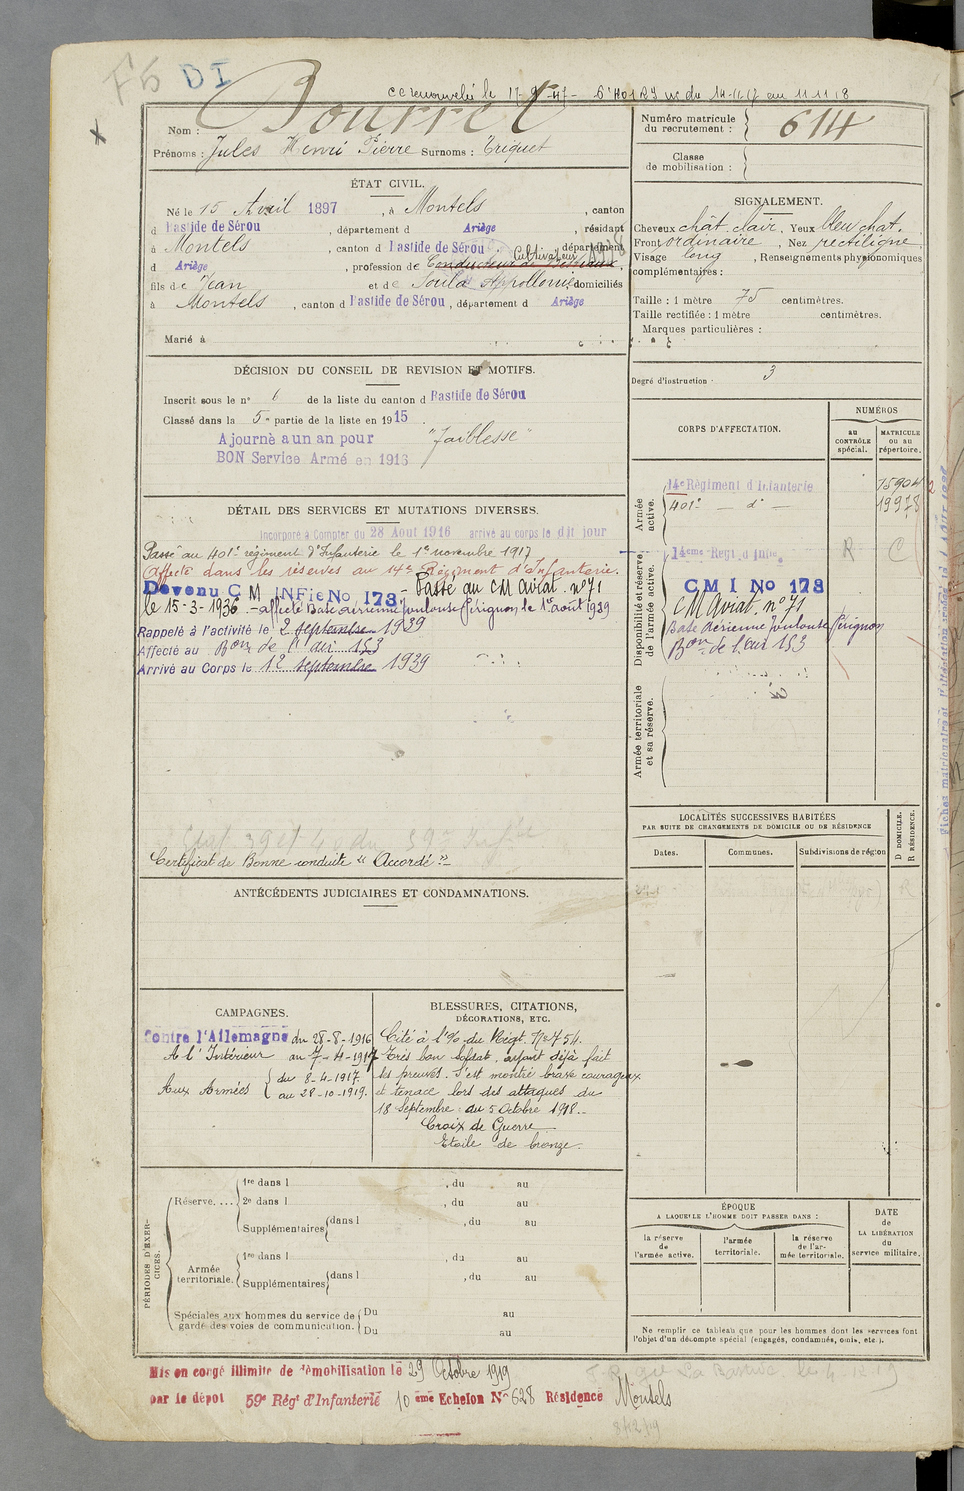 F5 DI
CC renouvelée le 17-9-47 -
Nom : Bourrel
Prénoms : Jules Henri Pierre Surnoms : Triquet
Numéro matricule
du recrutement : 614
Classe
de mobilisation :
ÉTAT CIVIL.
Né le 15 Avril 1897, à Montels, canton
d Bastide de Sérou, département d Ariège, résidant
à Montels, canton d Bastide de Sérou, département
d Ariège, profession de Conducteur de Cultivateur
fils de Jean et de Soula Appollonie domiciliés
à Montels, canton d Bastide de Sérou, département d Ariège
Marié à
SIGNALEMENT.
Cheveux chât. clair, Yeux bleu chat.
Front ordinaire, Nez rectiligne,
Visage long, Renseignements physionomiques
complémentaires :
Taille : 1 mètre 75 centimètres.
Taille rectifiée : 1 mètre centimètres.
Marques particulières :
Degré d'instruction : 3
DÉCISION DU CONSEIL DE REVISION ET MOTIFS.
Inscrit sous le n° 6 de la liste du canton d Bastide de Sérou
Classé dans la 5e partie de la liste en 1915.
Ajourné a un an pour "faiblesse"
BON Service Armé en 1916
CORPS D'AFFECTATION.
NUMÉROS
au
CONTRÔLE
spécial.
MATRICULE
ou au
répertoire.
Armée
active.
14e Régiment d'Infanterie 15904
401e - d° - 19978
Disponibilité et réserve
de l'armée active.
14eme Regt d'Infie R C
CMI No 173
CM Aviat. n° 71
Base Aérienne Toulouse Pérignon
Bon de l'air 153
Armée territoriale
et sa réserve.
DÉTAIL DES SERVICES ET MUTATIONS DIVERSES.
Incorporé à Compter du 28 Aout 1916 arrivé au corps le dit jour
Passé au 401e régiment d'Infanterie le 1er novembre 1917
Affecté dans les réserves au 14e Régiment d'Infanterie.
Devenu C M INFie No 173. - Passé au CM aviat. n° 71
le 15-3-1936 - affecté Base aérienne Toulouse Pérignon le 1er août 1939
Rappelé à l'activité le 2 septembre 1939
Affecté au Bon de l'air 153
Arrivé au Corps le 1er septembre 1939
Certificat de Bonne conduite « Accordé »
LOCALITÉS SUCCESSIVES HABITÉES
PAR SUITE DE CHANGEMENTS DE DOMICILE OU DE RÉSIDENCE
Dates. Communes. Subdivisions de région D DOMICILE. R RÉSIDENCE.
ANTÉCÉDENTS JUDICIAIRES ET CONDAMNATIONS.
CAMPAGNES.
Contre l'Allemagne du 28-8-1916
A l'Intérieur au 7-4-1917
Aux Armées du 8-4-1917.
au 28-10-1919.
BLESSURES, CITATIONS,
DÉCORATIONS, ETC.
Cité à l'O/ du Régt. N° 754.
Très bon soldat, ayant déjà fait
ses preuves. S'est montré brave courageux
et tenace lors des attaques du
18 Septembre au 5 Octobre 1918.
Croix de Guerre
Etoile de bronze.
PÉRIODES D'EXERCICES.
Réserve....
1re dans l , du au
2e dans l , du au
Supplémentaires dans l , du au
Armée
territoriale.
1re dans l , du au
Supplémentaires dans l , du au
Spéciales aux hommes du service de
garde des voies de communication.
Du au
Du au
ÉPOQUE
A LAQUELLE L'HOMME DOIT PASSER DANS :
la réserve
de
l'armée active.
l'armée
territoriale.
la réserve
de l'ar-
mée territoriale.
DATE
de
LA LIBÉRATION
du
service militaire.
Ne remplir ce tableau que pour les hommes dont les services font
l'objet d'un décompte spécial (engagés, condamnés, omis, etc.).
Mis en congé illimité de démobilisation le 29 Octobre 1919
par le dépot 59e Régt d'Infanterie 10 ème Echelon No 628 Résidence Montels
8/12/19